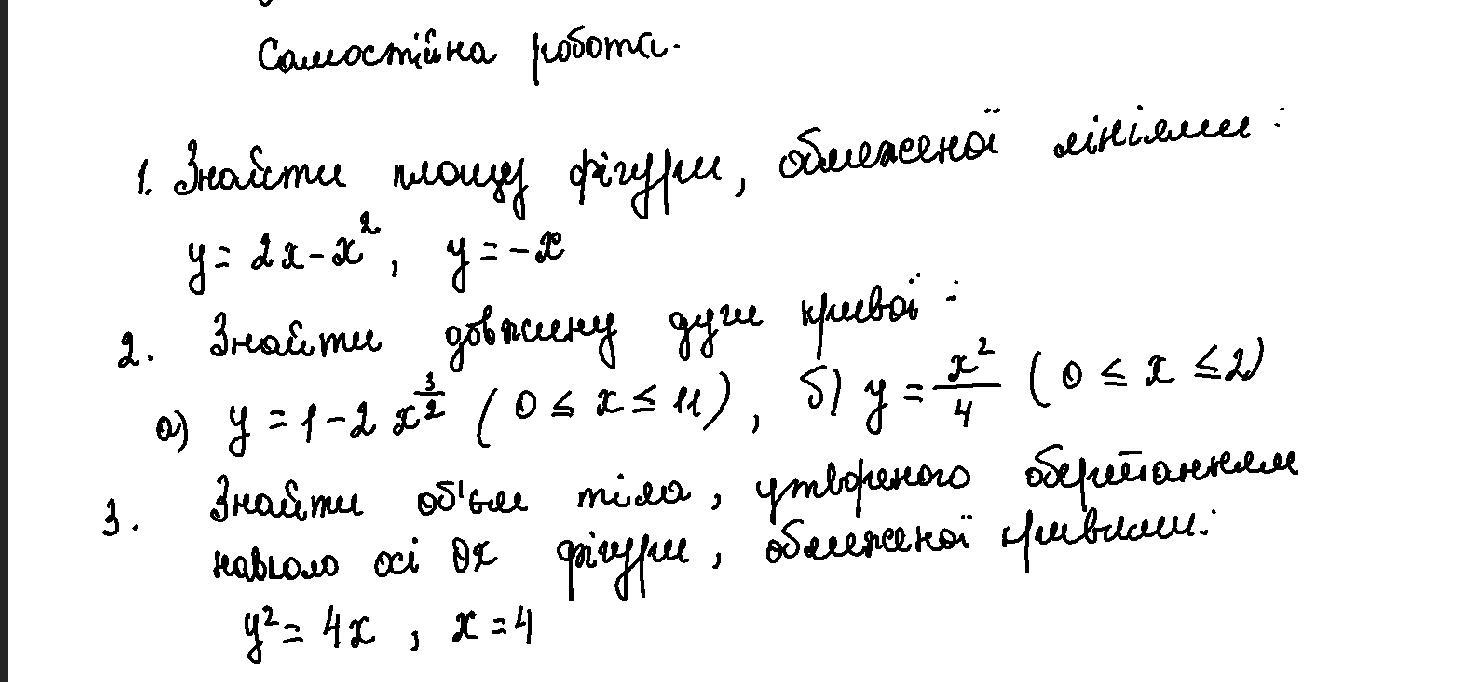 Самостійна робота.
1. Знайти площу фігури, обмеженої лініями:
y = 2x - x², y = -x
2. Знайти довжину дуги кривої:
а) y = 1 - 2x^(3/2) (0 ≤ x ≤ 11), б) y = x²/4 (0 ≤ x ≤ 2)
3. Знайти об'єм тіла, утвореного обертанням
навколо осі Ox фігури, обмеженої кривими:
y² = 4x, x = 4